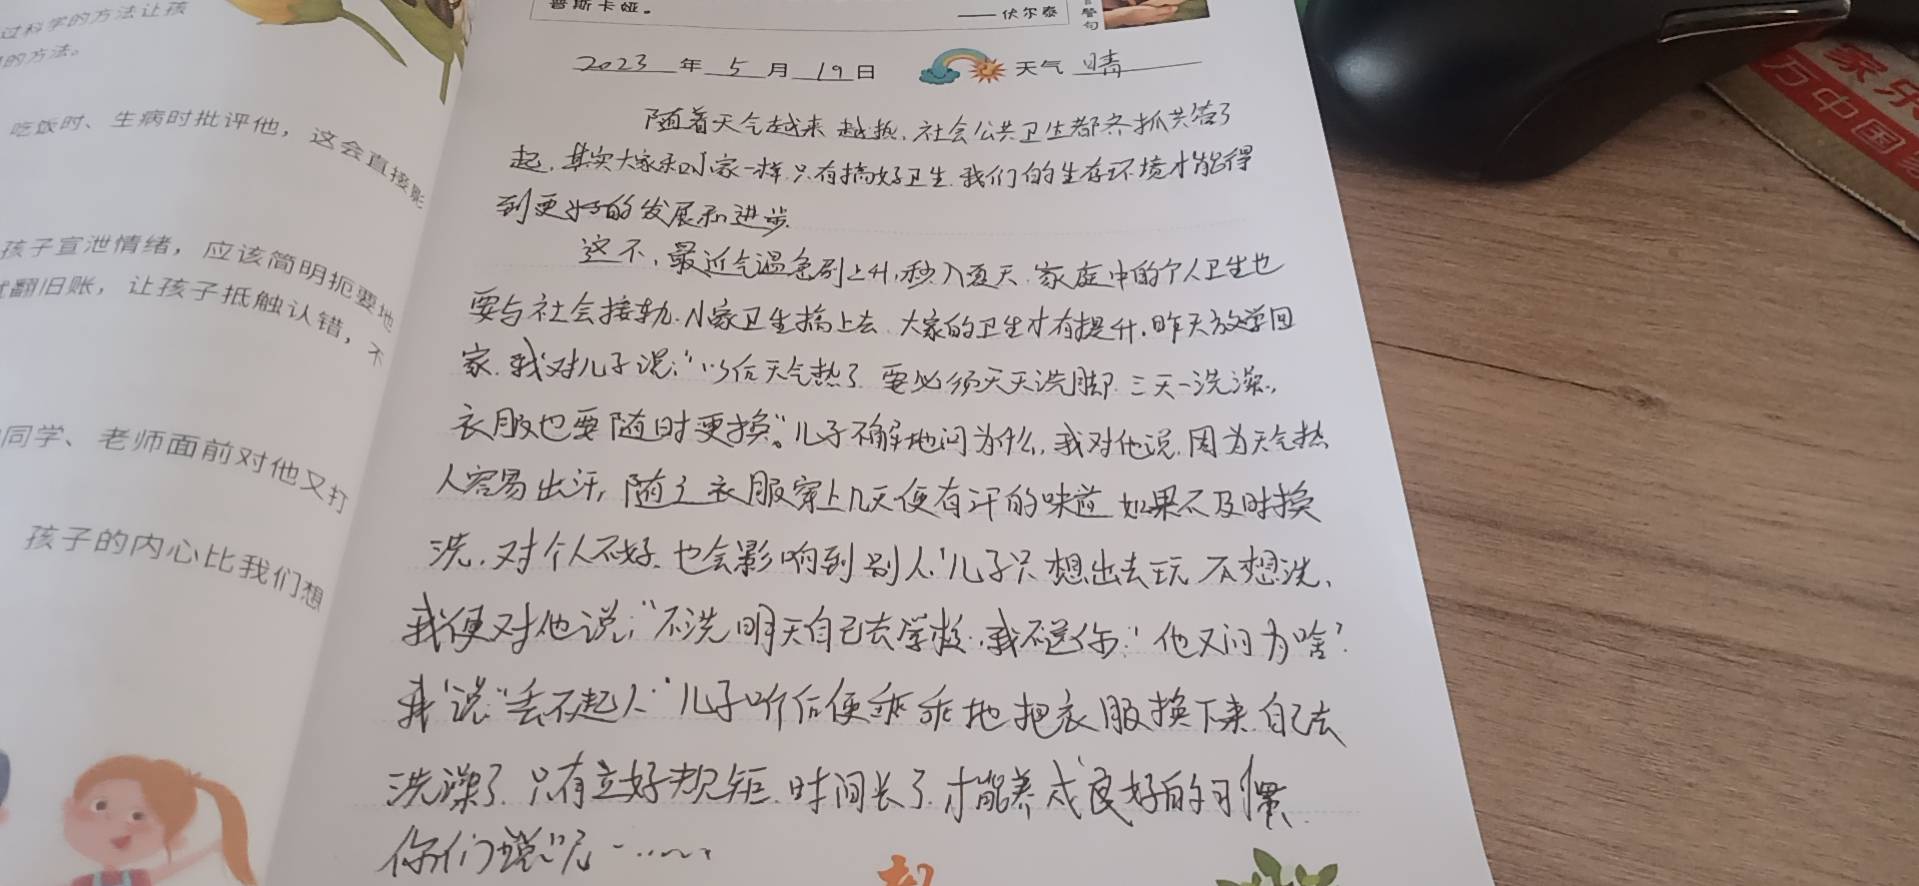 过科学的方法让孩
的方法。
吃饭时、生病时批评他，这会直接影
孩子宣泄情绪，应该简明扼要地
就翻旧账，让孩子抵触认错，不
同学、老师面前对他又打
孩子的内心比我们想
普斯卡娅。
——伏尔泰
警句
2023年5月19日 天气 晴
随着天气越来越热，社会公共卫生都齐抓共管了
起，其实大家和小家一样，只有搞好卫生，我们的生存环境才能得
到更好的发展和进步。
这不，最近气温急剧上升，秒入夏天，家庭中的个人卫生也
要与社会接轨，小家卫生搞上去，大家的卫生才有提升，昨天放学回
家，我对儿子说："以后天气热了，要必须天天洗脚，三天一洗澡，
衣服也要随时更换"。儿子不解地问为什么，我对他说，因为天气热
人容易出汗，随之衣服穿上几天便有汗的味道，如果不及时换
洗，对个人不好，也会影响到别人"儿子只想出去玩，不想洗、
我便对他说："不洗明天自己去学校，我不送你"他又问为啥？
我说"丢不起人"儿子听后便乖乖地把衣服换下来，自己去
洗澡了，只有立好规矩，时间长了，才能养成良好的习惯，
你们说呢……
家乐
万中国家